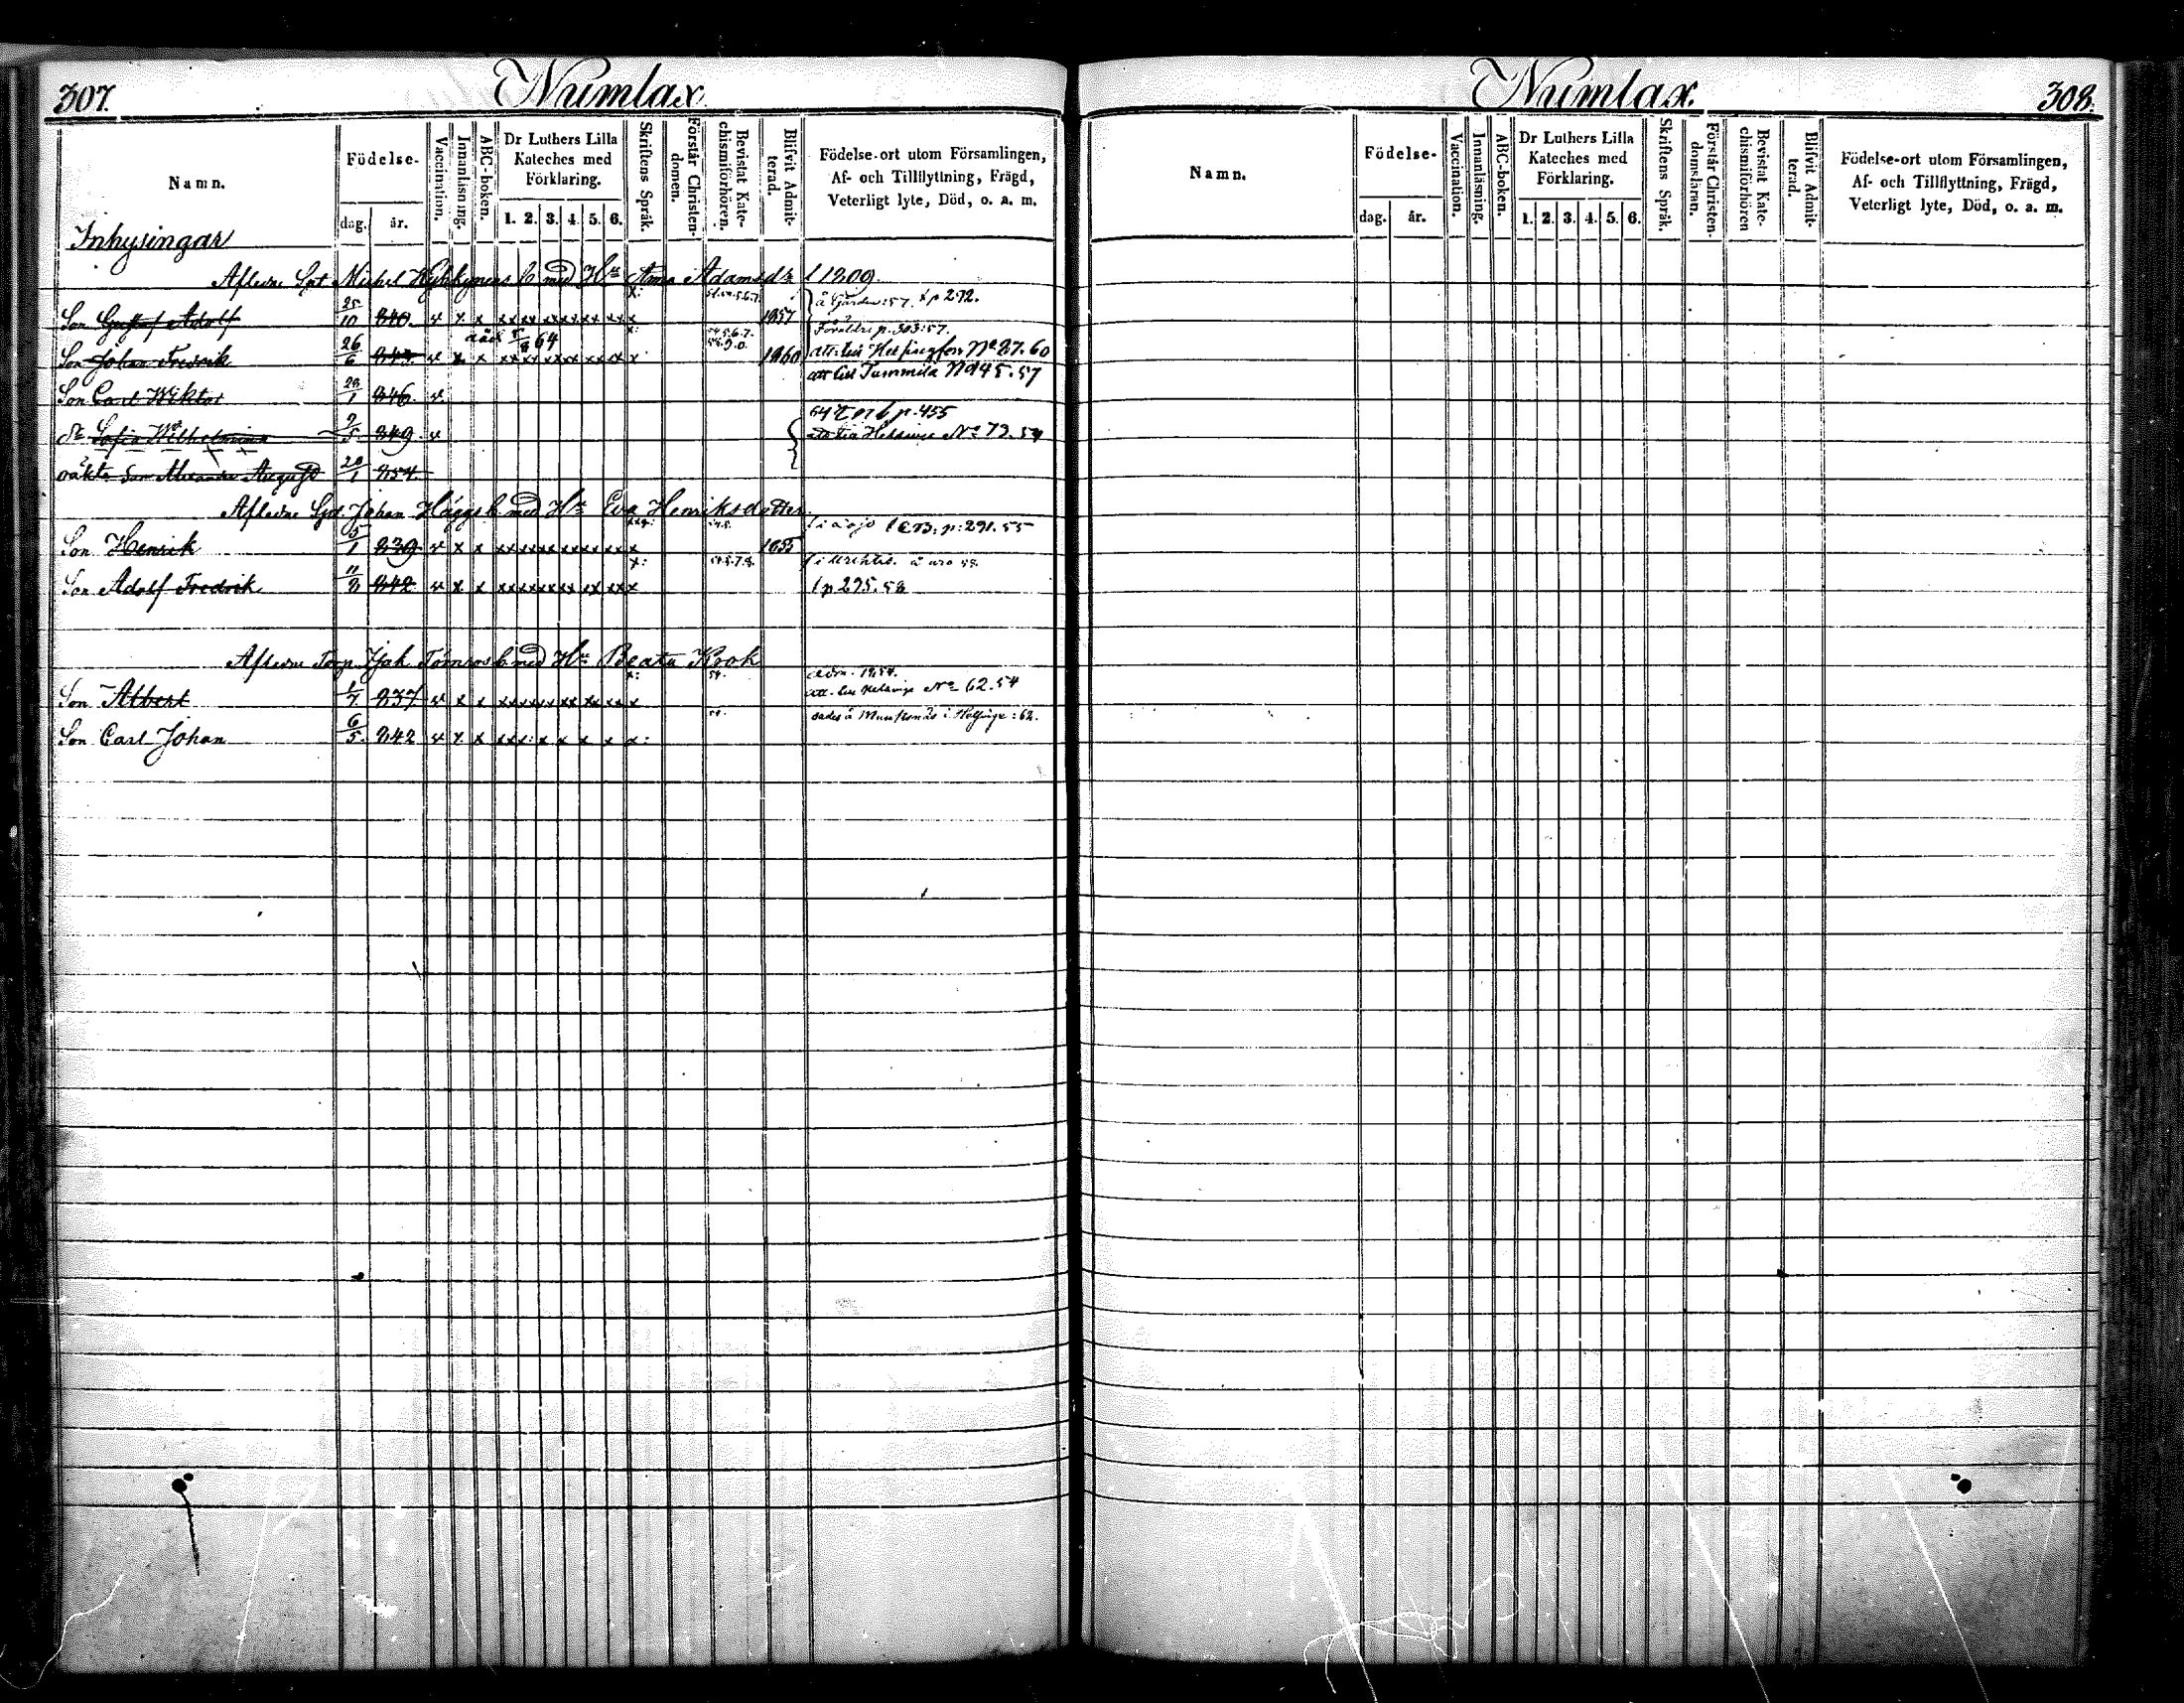 307.
Numlax
Namn.
Födelse-
dag.
år.
Vaccination.
Innanläsning.
ABC-boken.
Dr Luthers Lilla
Kateches med
Förklaring.
1. 2. 3. 4. 5. 6.
Skriftens Språk.
Förstår Christen-
domen.
Bevistat Kate-
chismiförhören.
Blifvit Admit-
terad.
Födelse-ort utom Församlingen,
Af- och Tillflyttning, Frägd,
Veterligt lyte, Död, o. a. m.
Inhysingar
Aflidne Michel b med Hu Anna Adamsdr
Son Gustaf Adolf 25/10 840. v x x xx xx xx xx xx xx x 1857 p 272.
död 5/8 64
p. 303:57.
Son Johan Fredrik 26/6 v x x xx xx xx xx xx xx x 1860 att. till Helsingfors No 87. 60
att till Tummila No 45. 57
Son Carl Wiktor 846. v.
p. 455
Dr Sofia Wilhelmina 849. v No 73. 54
oäkta Son August 20/1 854.
Aflidne Johan Häggs b med Hu Eva Henriksdotter
p: 291. 55
Son Henrik 5/1 839 v x x xx xx xx xx xx xx x 1855
Son Adolf Fredrik 11/8 842 v x x xx xx xx xx xx xx x p 295. 58
Aflidne Torp. Törnros b med Hu Beata Kook
adm. 1854.
Son Albert 1/7 837 v x x xx xx xx xx xx xx x No 62. 54
Son Carl Johan 6/5 842 v x x xx x: x x x x x: i Helsinge: 62.
Numlax.
308.
Namn.
Födelse-
dag.
år.
Vaccination.
Innanläsning.
ABC-boken.
Dr Luthers Lilla
Kateches med
Förklaring.
1. 2. 3. 4. 5. 6.
Skriftens Språk.
Förstår Christen-
domsläran.
Bevistat Kate-
chismiförhören
Blifvit Admit-
terad.
Födelse-ort utom Församlingen,
Af- och Tillflyttning, Frägd,
Veterligt lyte, Död, o. a. m.